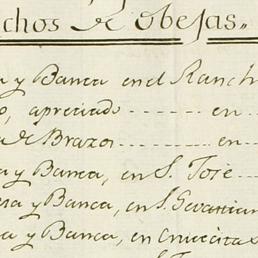 chos de obejas..
a y Banca en el Ranch
o, apreciado en
a de Brazos en
a y Banca, en S. Jose
esa y Banca, en S. Sevastian
sa y Banca, en Crucecitas